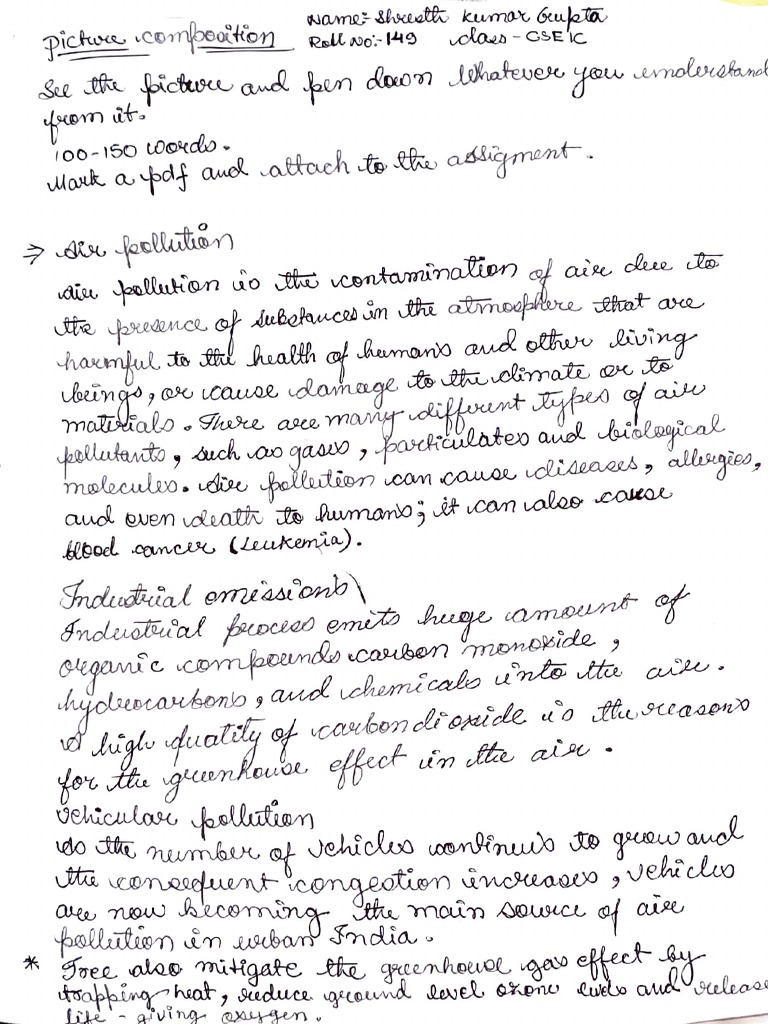 Picture composition
Name:- Shresth Kumar Gupta
Roll No:- 149 class - CSE 1C
See the picture and pen down Whatever you understand
from it.
100-150 words.
Mark a pdf and attach to the assigment.
⇒ Air pollution
Air pollution is the contamination of air due to
the presence of substances in the atmosphere that are
harmful to the health of humans and other living
beings, or cause damage to the climate or to
materials. There are many different types of air
pollutants, such as gases, particulates and biological
molecules. Air pollution can cause diseases, allergies,
and even death to humans; it can also cause
blood cancer (Leukemia).
Industrial emissions\
Industrial process emits huge amount of
organic compounds carbon monoxide,
hydrocarbons, and chemicals into the air.
A high quatity of carbondioxide is the reasons
for the greenhouse effect in the air.
Vehicular pollution
As the number of vehicles continues to grow and
the consequent congestion increases, vehicles
are now becoming the main source of air
pollution in urban India.
* Tree also mitigate the greenhouse gas effect by
trapping heat, reduce ground level ozone levels and release
life-giving oxygen.